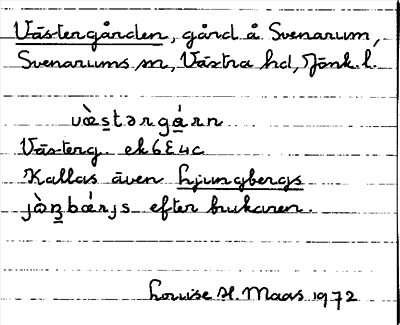 Västergården, gård å Svenarum,
Svenarums sn, Västra hd, Jönk. l.
væ̀stərgárn
Västerg. ek 6E4c
Kallas även Ljungbergs
jòŋbǽrjs efter brukaren.
Louise H. Maas 1972